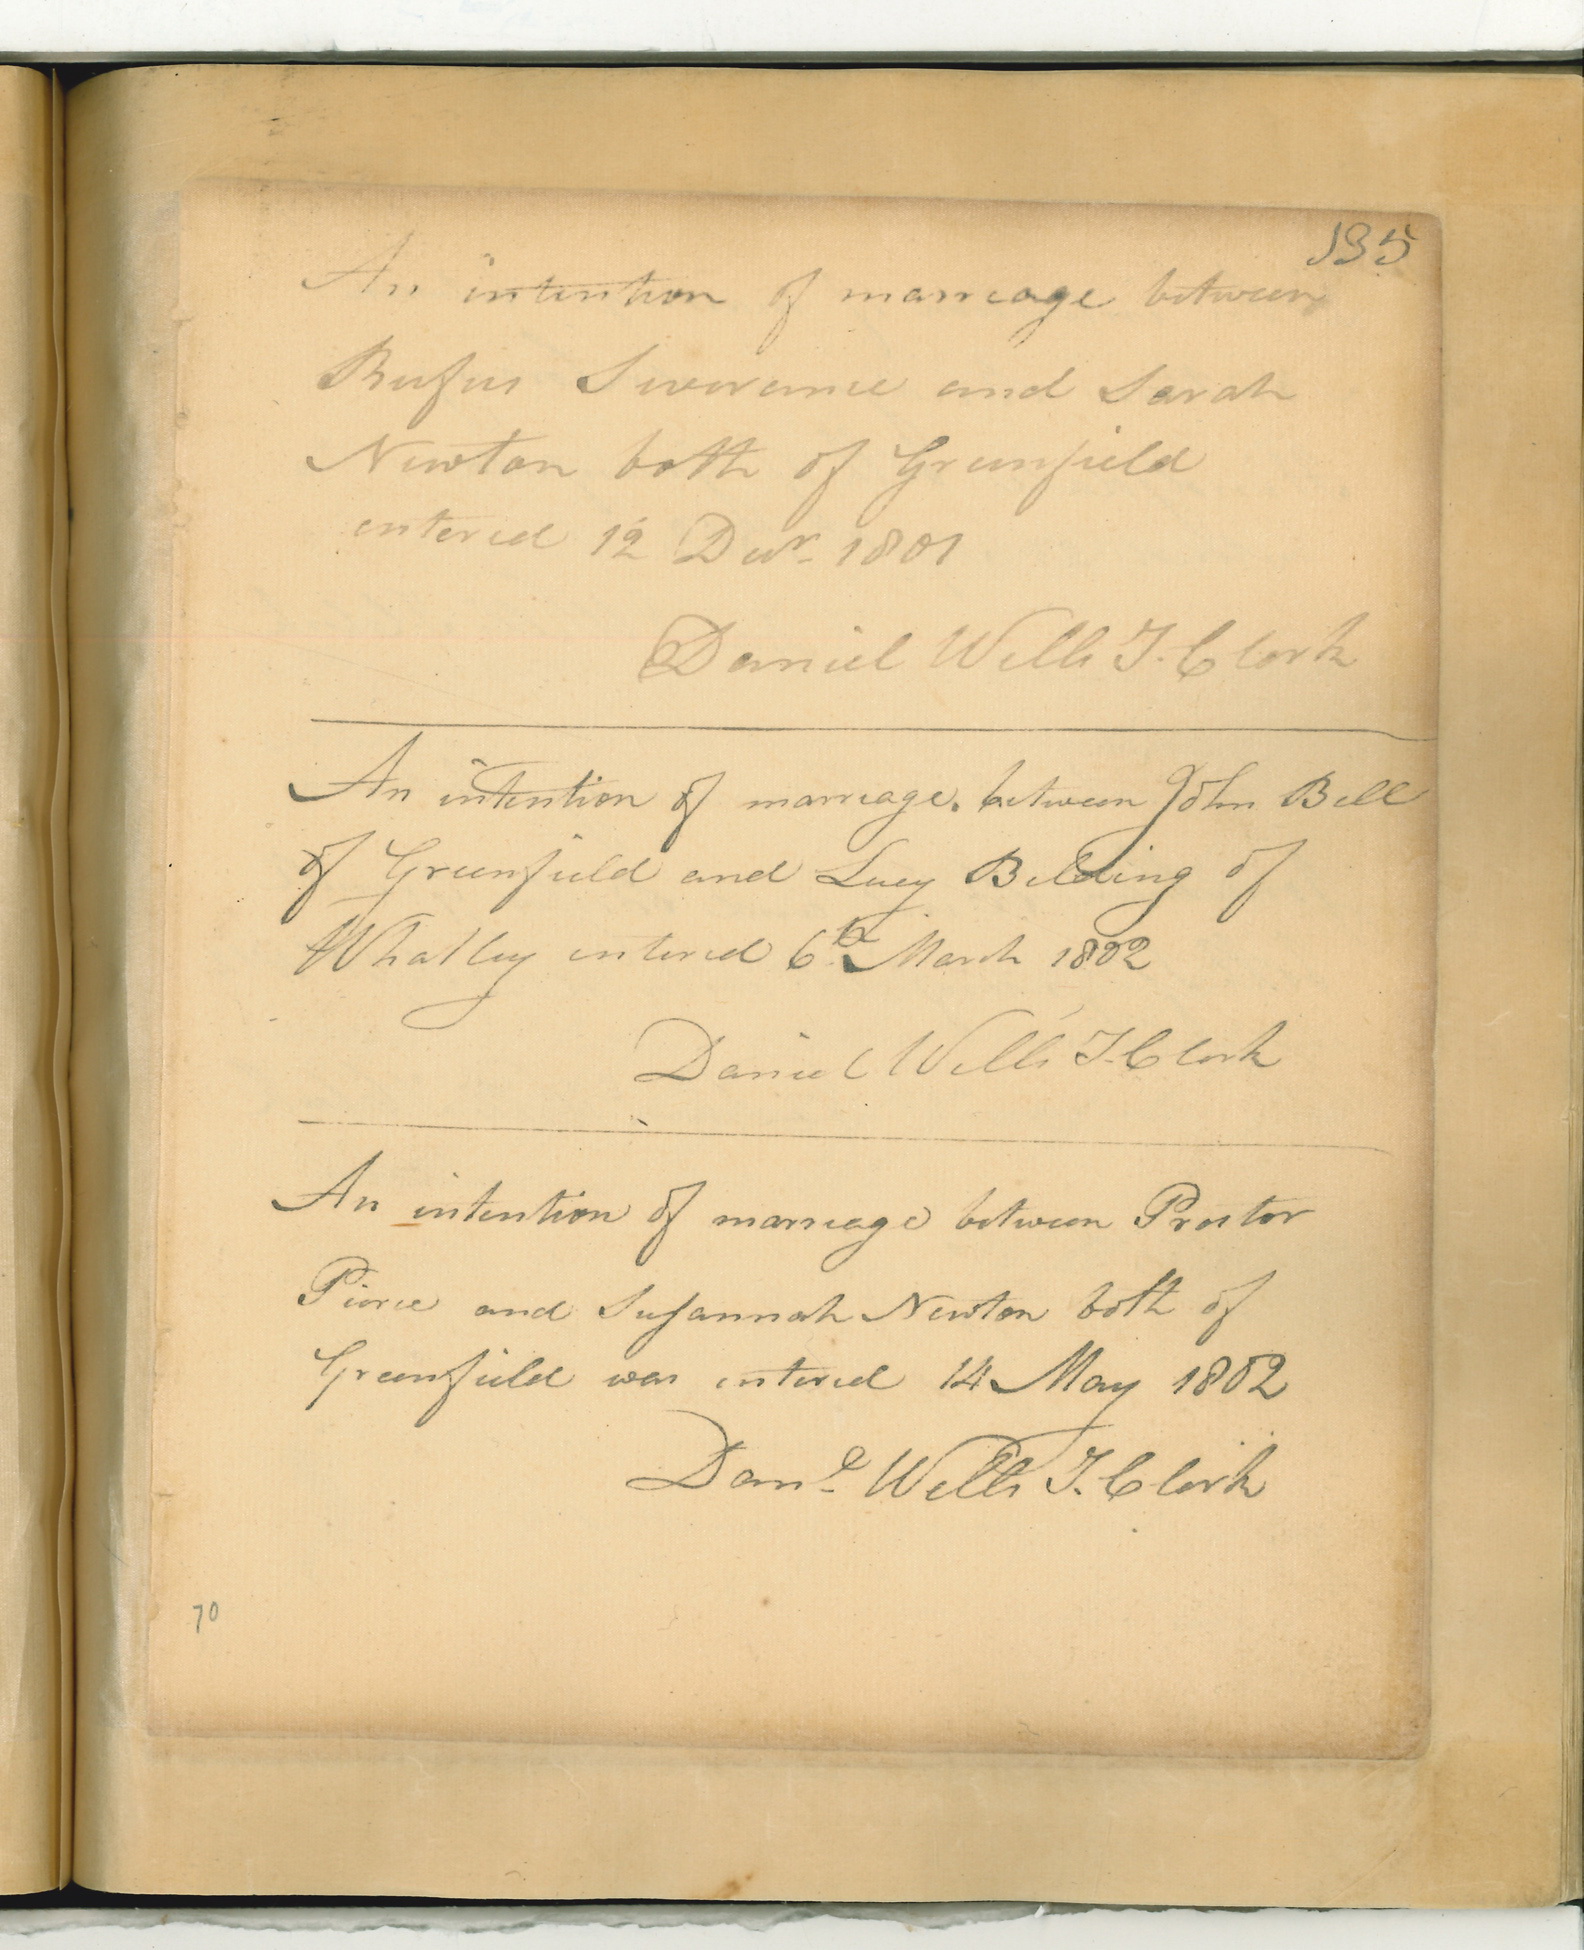 135
An intention of marriage between
Rufus Severance and Sarah
Newton both of Greenfield
entered 12 Decr. 1801
Daniel Wells T. Clerk
An intention of marriage. between John Bell
of Greenfield and Lucy Belding of
Whatley entered 6th March 1802
Daniel Wells T. Clerk
An intention of marriage between Proctor
Pierce and Susannah Newton both of
Greenfield was entered 14 May 1802
Danl. Wells T. Clerk
70